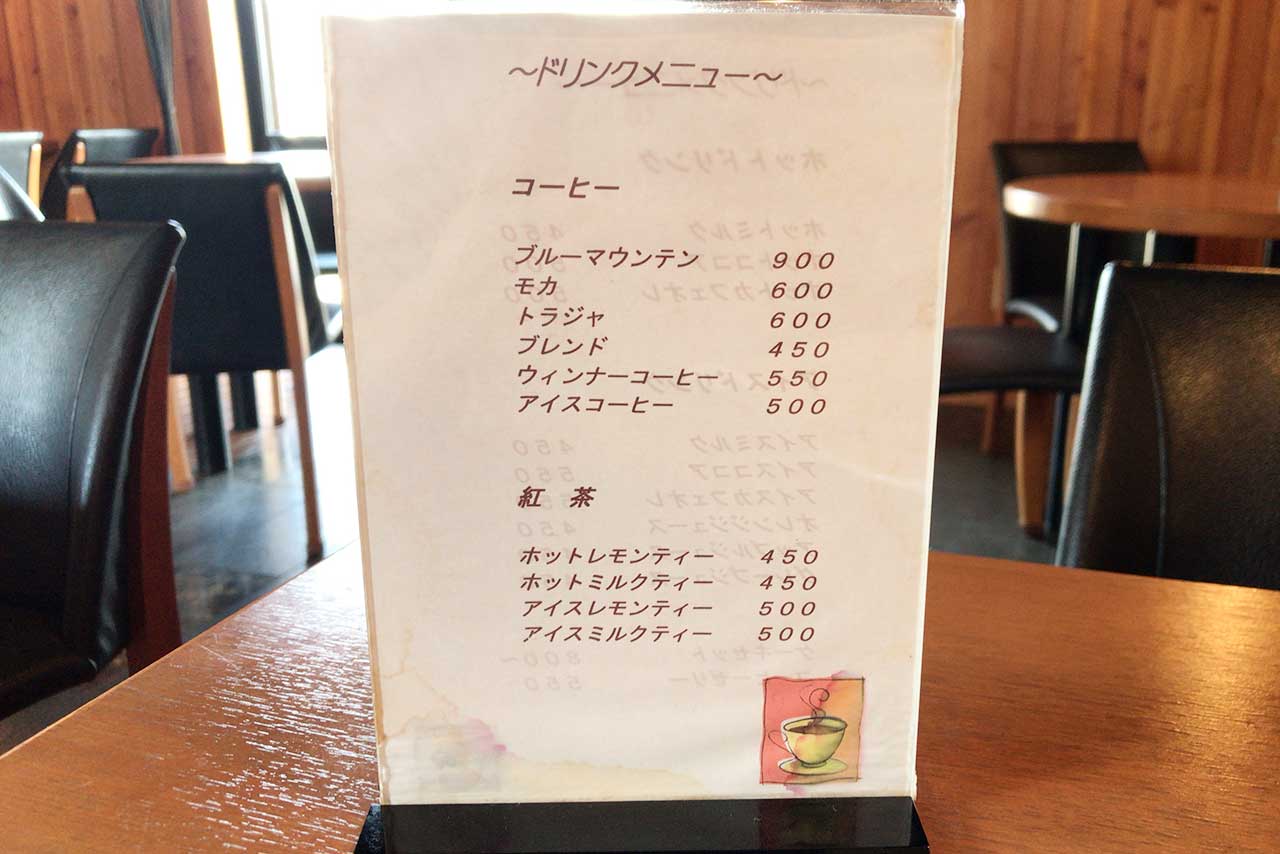 ～ドリンクメニュー～
コーヒー
ブルーマウンテン 900
モカ 600
トラジャ 600
ブレンド 450
ウィンナーコーヒー 550
アイスコーヒー 500
紅　茶
ホットレモンティー 450
ホットミルクティー 450
アイスレモンティー 500
アイスミルクティー 500